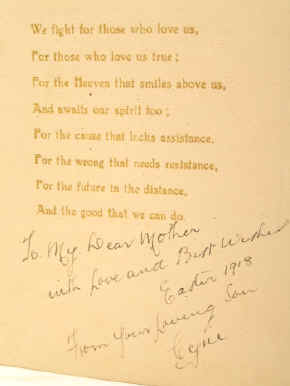 We fight for those who love us,
For those who love us true;
For the Heaven that smiles above us,
And awaits our spirit too;
For the cause that lacks assistance,
For the wrong that needs resistance,
For the future in the distance,
And the good that we can do.
To My Dear Mother
with Love and Best Wishes
Easter 1918
From Your Loving Son